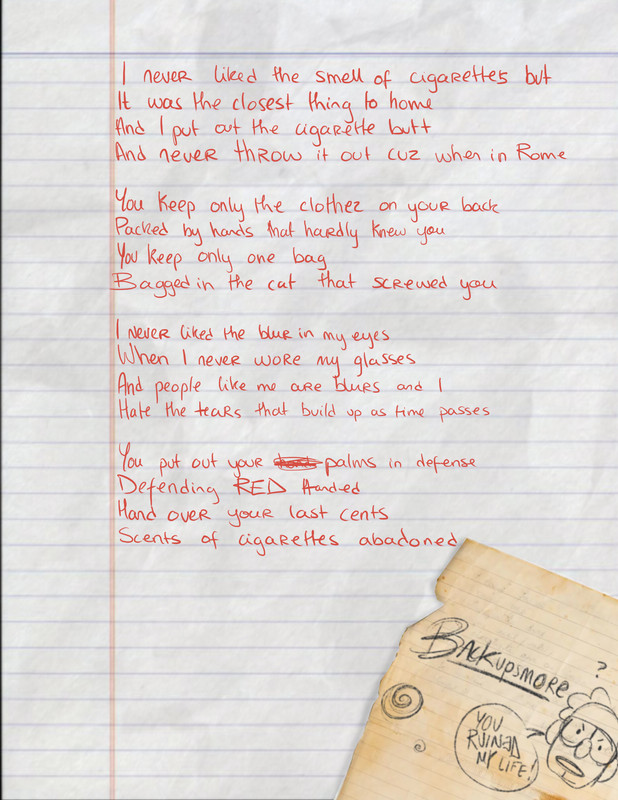 I never liked the smell of cigarettes but
It was the closest thing to home
And I put out the cigarette butt
And never throw it out cuz when in Rome
You keep only the clothez on your back
Packed by hands that hardly knew you
You keep only one bag
Bagged in the cat that screwed you
I never liked the blur in my eyes
When I never wore my glasses
And people like me are blurs and I
Hate the tears that build up as time passes
You put out your palms in defense
Defending RED Handed
Hand over your last cents
Scents of cigarettes abadoned
Backupsmore
?
YOU
RUINED
MY LIFE!